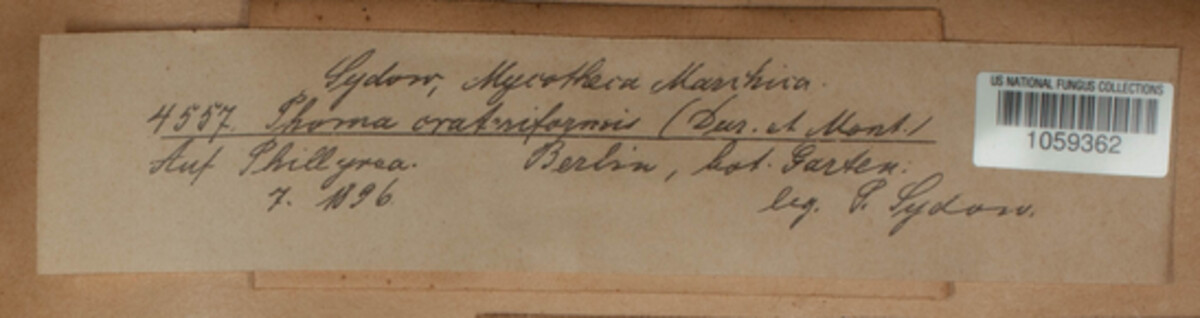 Sydow, Mycotheca Marchica.
4557. Phoma crateriformis (Dur. et Mont.)
Auf Phillyrea. Berlin, bot. Garten.
7. 1896 leg. P. Sydow.
US NATIONAL FUNGUS COLLECTIONS
1059362